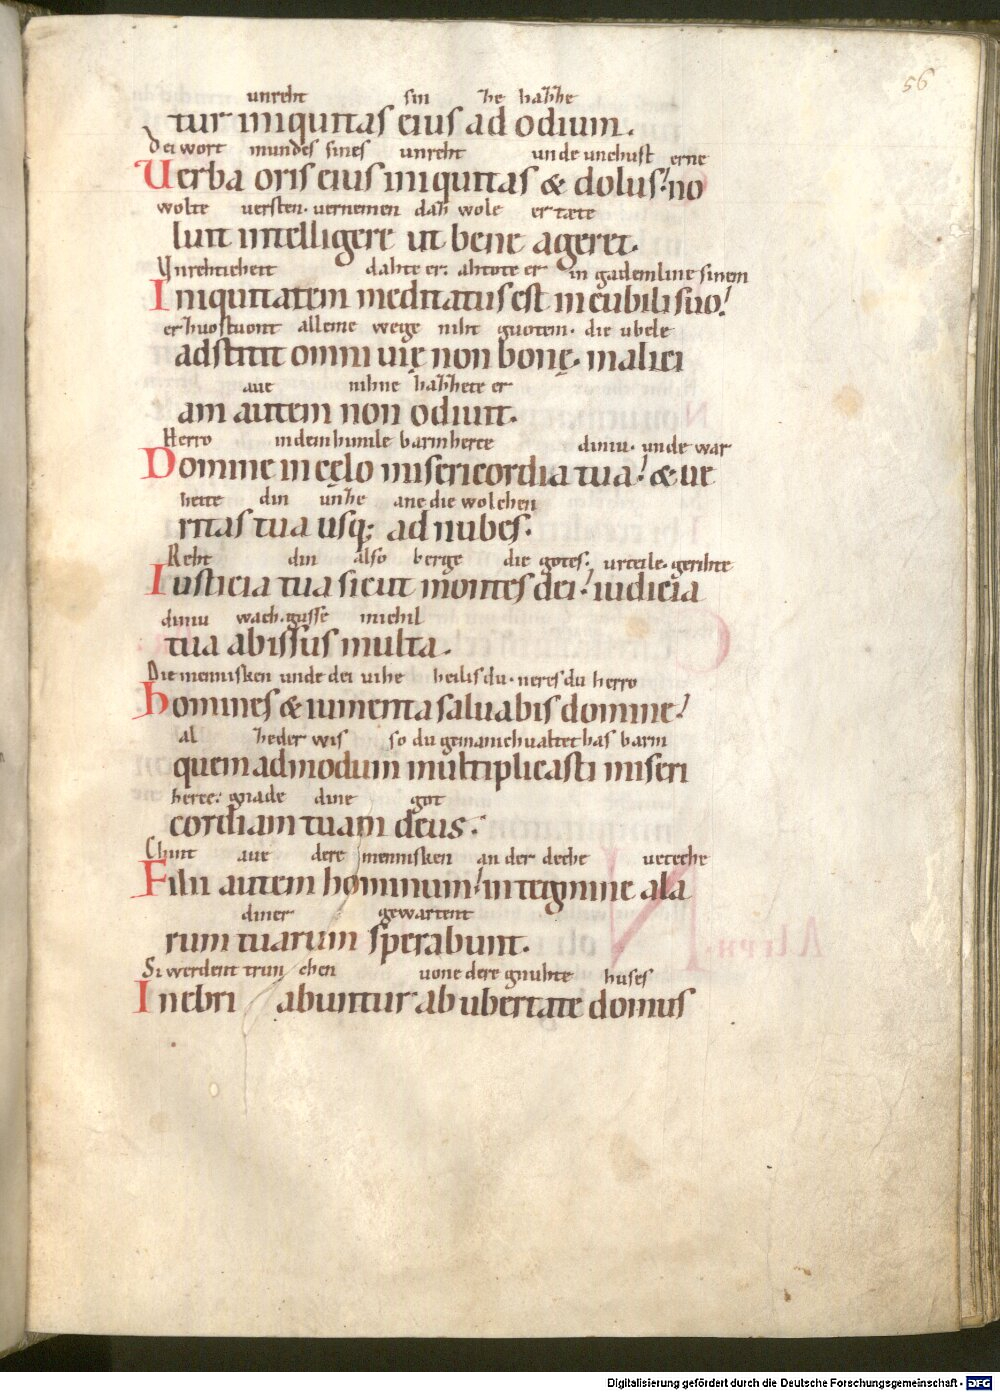 56
unreht sin ze hazze
tur iniquitas eius ad odium.
Dei wort mundes sines unreht unde unchust erne
Uerba oris eius iniquitas & dolus: no
wolte versten. vernemen daz wole er tæte
luit intelligere ut bene ageret.
Vnrehticheit dahte er: ahtote er in gademline sinem
Iniquitatem meditatus est in cubili suo:
er zuostuont alleme wege niht guotem. die ubele
adstitit omni uię non bonę. malici
ave nihne hazzete er
am autem non odiuit.
Herro in dem himile barmherce diniu. unde war
Domine in cęlo misericordia tua: & ue
heite din unze ane die wolchen
ritas tua usq; ad nubes.
Reht din also berge die gotes: urteile. gerihte
Iusticia tua sicut montes dei: iudicia
diniu wach.gusse michil
tua abissus multa.
Die mennisken unde dei vihe heilis du. neres du herro
homines & iumenta saluabis domine:
al zeder wis so du gemanichualtet has barm
quemadmodum multiplicasti miseri
herce: gnade dine got
cordiam tuam deus.
Chint ave dere mennisken an der deche veteche
Filii autem hominum: in tegmine ala
diner gewartent
rum tuarum sperabunt.
Si werdent trun chen vone dere gnuhte huses
Inebri abuntur ab ubertate domus
Digitalisierung gefördert durch die Deutsche Forschungsgemeinschaft - DFG